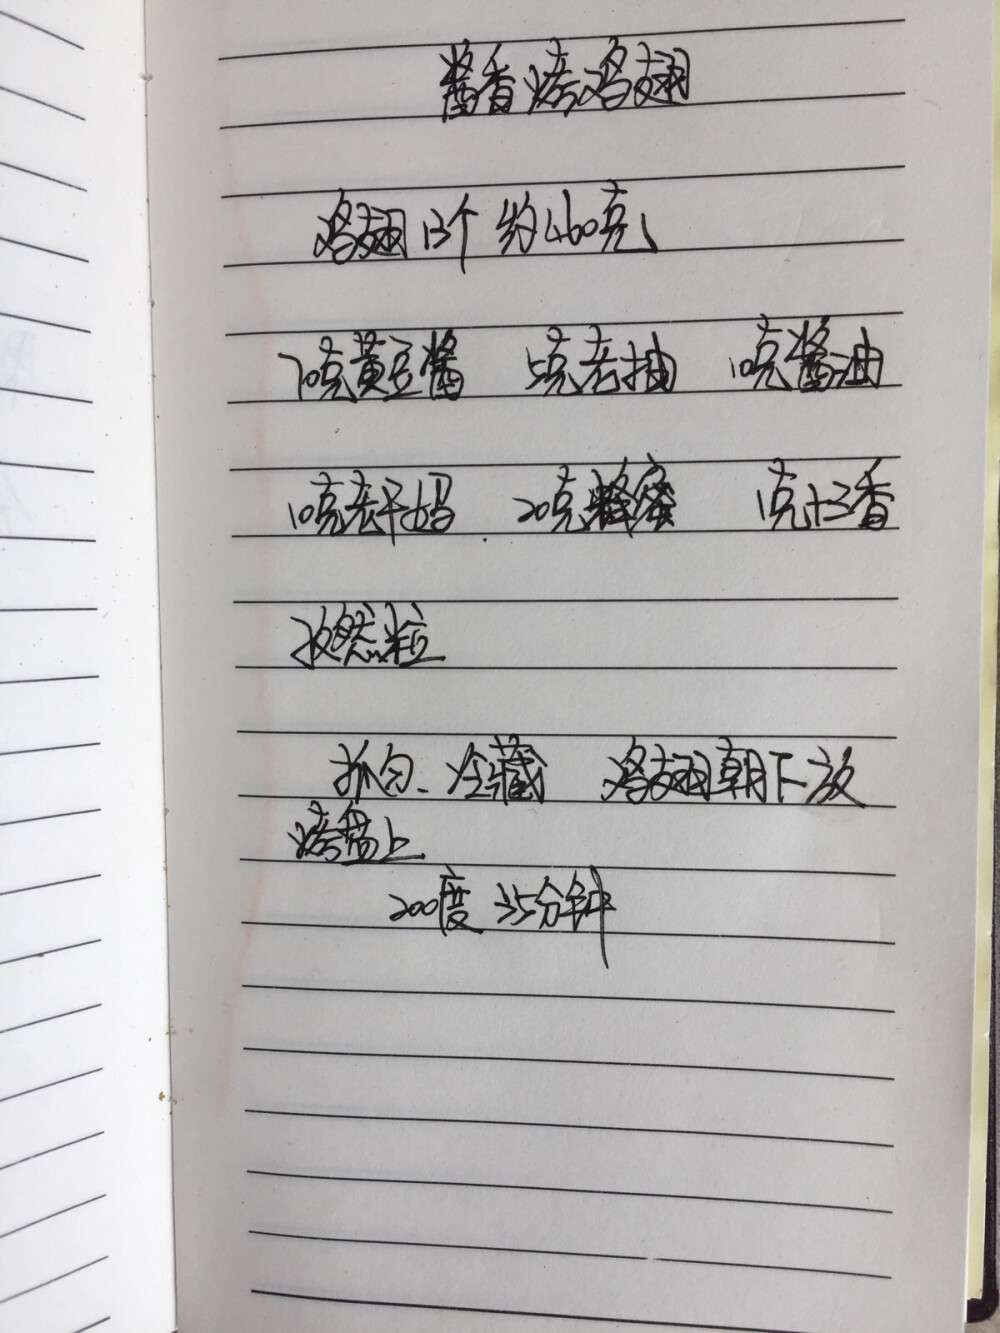 酱香烤鸡翅
鸡翅13个 约460克
70克黄豆酱 5克老抽 10克酱油
10克老干妈 20克蜂蜜 1克十三香
孜然粒
抓匀、冷藏 鸡翅朝下放
烤盘上
200度 35分钟